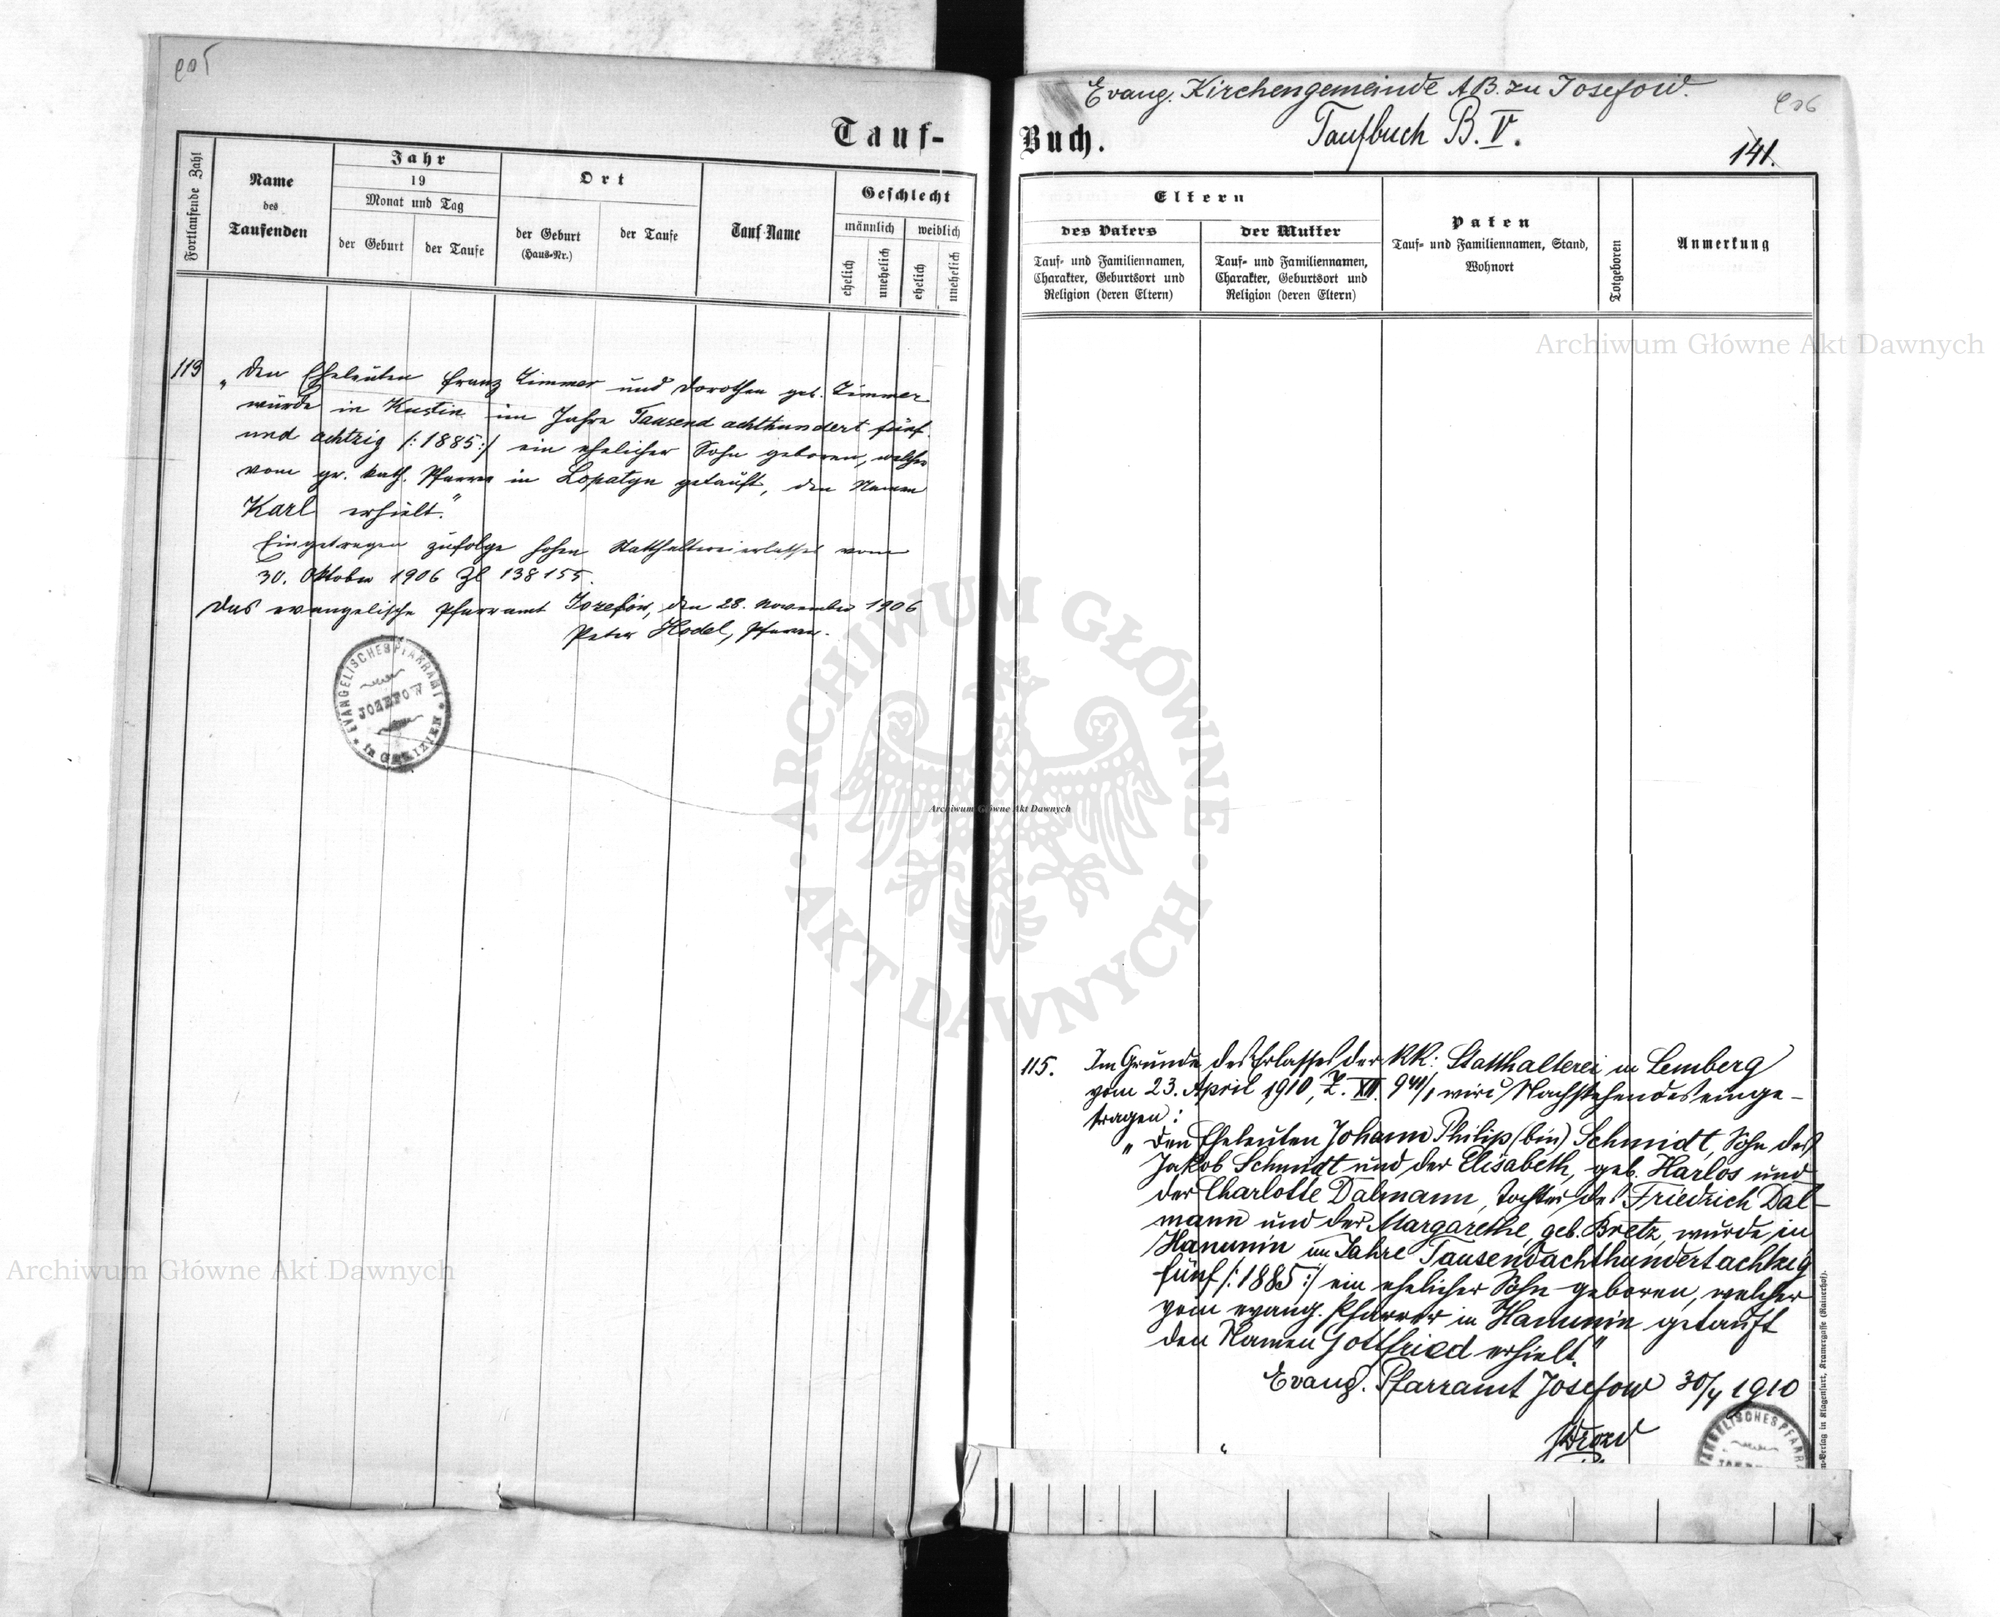 905
Tauf-
Fortlaufende Zahl
Name
des
Taufenden
Jahr
19
Monat und Tag
der Geburt
der Taufe
Ort
der Geburt
(Haus-Nr.)
der Taufe
Tauf-Name
Geschlecht
männlich
weiblich
ehelich
unehelich
ehelich
unehelich
113
„Den Eheleuten Franz Zimmer und Dorothea geb. Zimmer
wurde in Kustin im Jahre Tausend achthundert fünf
und achtzig /:1885:/ ein ehelicher Sohn geboren, welcher
vom gr. kath. Pfarrer in Lopatyn getauft, den Namen
Karl erhielt."
Eingetragen zufolge hohen Statthaltereierlasses vom
30. Oktober 1906 Zl 138155.
Das evangelische Pfarramt Josefów, den 28. November 1906
Peter Hodel, Pfarrer.
EVANGELISCHES PFARRAMT
JOZEFOW
in GALIZIEN
Evang. Kirchengemeinde AB. zu Josefow.
906
Buch.
Taufbuch B. V.
141.
Eltern
des Vaters
Tauf- und Familiennamen,
Charakter, Geburtsort und
Religion (deren Eltern)
der Mutter
Tauf- und Familiennamen,
Charakter, Geburtsort und
Religion (deren Eltern)
Paten
Tauf- und Familiennamen, Stand,
Wohnort
Totgeboren
Anmerkung
115. Im Grunde des Erlasses der KK: Statthalterei in Lemberg
vom 23. April 1910, Z. XII. 941/1 wird Nachstehendes einge-
tragen:
„Den Eheleuten Johann Philip (bin) Schmidt, Sohn des
Jakob Schmidt und der Elisabeth, geb. Harlos und
der Charlotte Dalmann, Tochter des Friedrich Dal-
mann und der Margarethe, geb. Bretz, wurde in
Hanunin im Jahre Tausendachthundertachtzig
fünf /:1885:/ ein ehelicher Sohn geboren, welcher
vom evang. Pfarrer in Hanunin getauft
den Namen Gottfried erhielt."
Evang. Pfarramt Josefow 30/4 1910
EVANGELISCHES PFARR
Archiwum Główne Akt Dawnych
Archiwum Główne Akt Dawnych
Archiwum Główne Akt Dawnych
ARCHIWUM GŁÓWNE
AKT DAWNYCH
-Verlag in Klagenfurt, Kramergasse (Rainerhof).